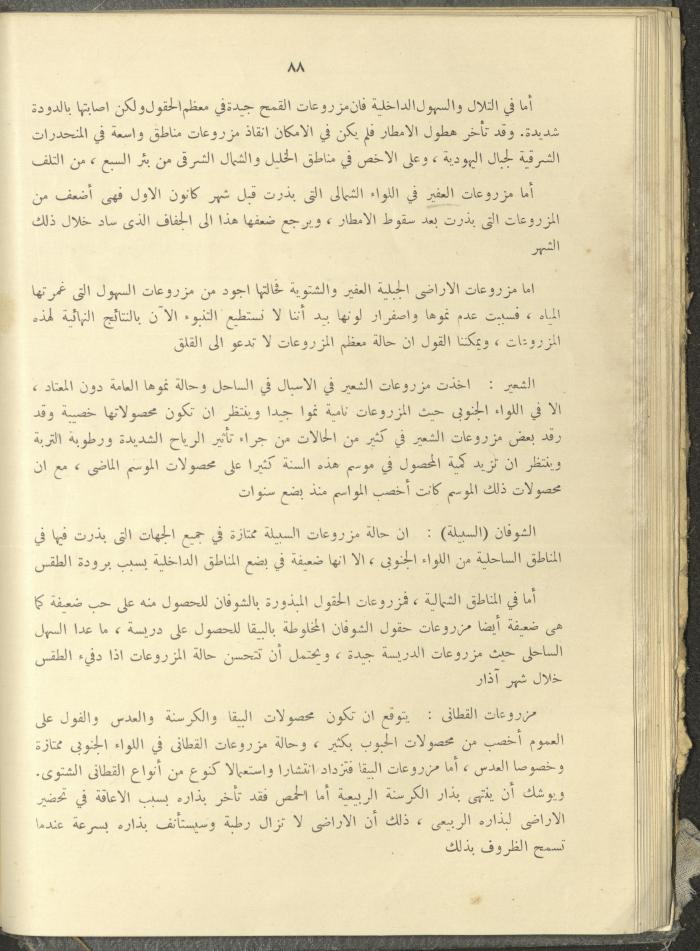 ٨٨
أما في التلال والسهول الداخلية فان مزروعات القمح جيدة في معظم الحقول ولكن اصابتها بالدودة
شديدة. وقد تأخر هطول الامطار فلم يكن في الامكان انقاذ مزروعات مناطق واسعة في المنحدرات
الشرقية لجبال اليهودية ، وعلى الاخص في مناطق الخليل والشمال الشرقى من بئر السبع ، من التلف
أما مزروعات العفير في اللواء الشمالى التى بذرت قبل شهر كانون الاول فهى أضعف من
المزروعات التى بذرت بعد سقوط الامطار ، ويرجع ضعفها هذا الى الجفاف الذى ساد خلال ذلك
الشهر
اما مزروعات الاراضى الجبلية العفير والشتوية فحالتها اجود من مزروعات السهول التى غمرتها
المياه ، فسببت عدم نموها واصفرار لونها بيد أننا لا نستطيع التنبوء الآن بالنتائج النهائية لهذه
المزروعات ، ويمكننا القول ان حالة معظم المزروعات لا تدعو الى القلق
الشعير : اخذت مزروعات الشعير في الاسبال في الساحل وحالة نموها العامة دون المعتاد ،
الا في اللواء الجنوبي حيث المزروعات نامية نموا جيدا وينتظر ان تكون محصولاتها خصيبة وقد
رقد بعض مزروعات الشعير في كثير من الحالات من جراء تأثير الرياح الشديدة ورطوبة التربة
وينتظر ان تزيد كمية المحصول في موسم هذه السنة كثيرا على محصولات الموسم الماضى ، مع ان
محصولات ذلك الموسم كانت أخصب المواسم منذ بضع سنوات
الشوفان (السبيلة) : ان حالة مزروعات السبيلة ممتازة في جميع الجهات التى بذرت فيها في
المناطق الساحلية من اللواء الجنوبى ، الا انها ضعيفة في بضع المناطق الداخلية بسبب برودة الطقس
أما في المناطق الشمالية ، فمزروعات الحقول المبذورة بالشوفان للحصول منه على حب ضعيفة كما
هى ضعيفة أيضا مزروعات حقول الشوفان المخلوطة بالبيقا للحصول على دريسة ، ما عدا السهل
الساحلى حيث مزروعات الدريسة جيدة ، ويحتمل أن تتحسن حالة المزروعات اذا دفىء الطقس
خلال شهر آذار
مزروعات القطانى : يتوقع ان تكون محصولات البيقا والكرسنة والعدس والفول على
العموم أخصب من محصولات الحبوب بكثير ، وحالة مزروعات القطانى في اللواء الجنوبي ممتازة
وخصوصا العدس ، أما مزروعات البيقا فتزداد انتشارا واستعمالا كنوع من أنواع القطانى الشتوى.
ويوشك أن ينتهى بذار الكرسنة الربيعية أما الحمص فقد تأخر بذاره بسبب الاعاقة في تحضير
الاراضى لبذاره الربيعى ، ذلك أن الاراضى لا تزال رطبة وسيستأنف بذاره بسرعة عندما
تسمح الظروف بذلك